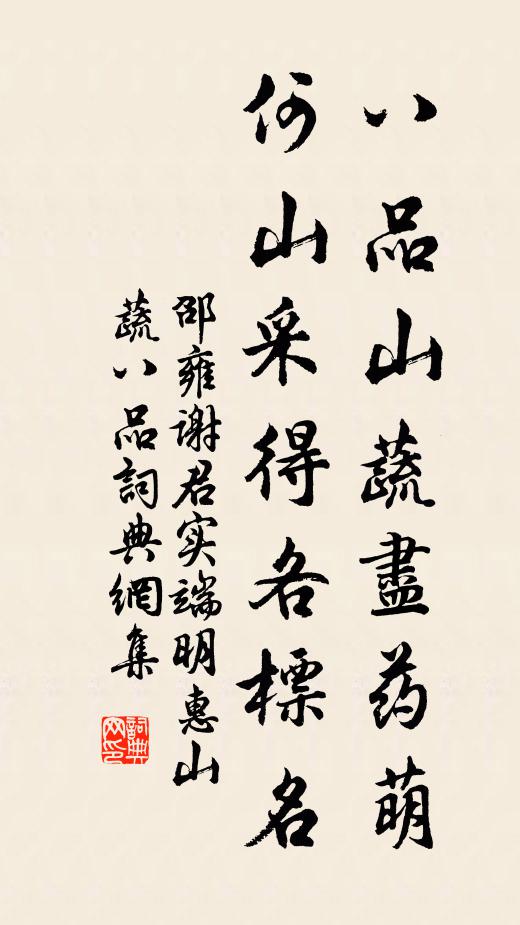 八品山蔬盡药萌
何山采得各標名
邵雍谢君实端明惠山
蔬八品詞典網集
詞典网印